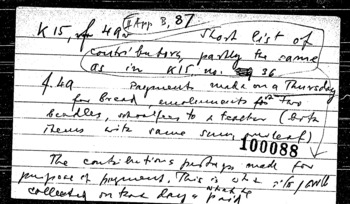 K 15, f. 49a II App B, 87
Short list of
contributors, partly the same
as in K15, no. 36
f. 49 Payments made on a Thursday
for bread, emoluments for two
beadles, school fees to a teacher (both
items with same sum, overleaf)
100088
The contributions perhaps made for
purpose of payment. This is what
collected on that day & paid